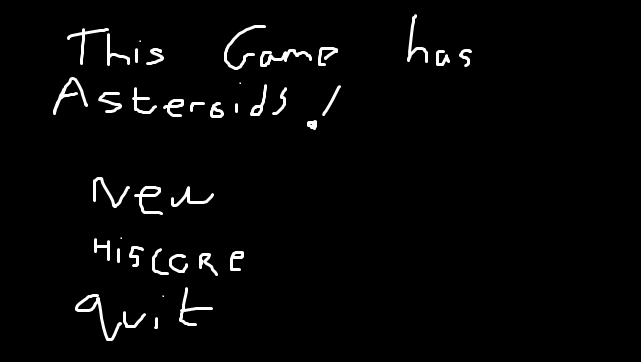 This Game has
Asteroids!
New
HiSCORE
quit